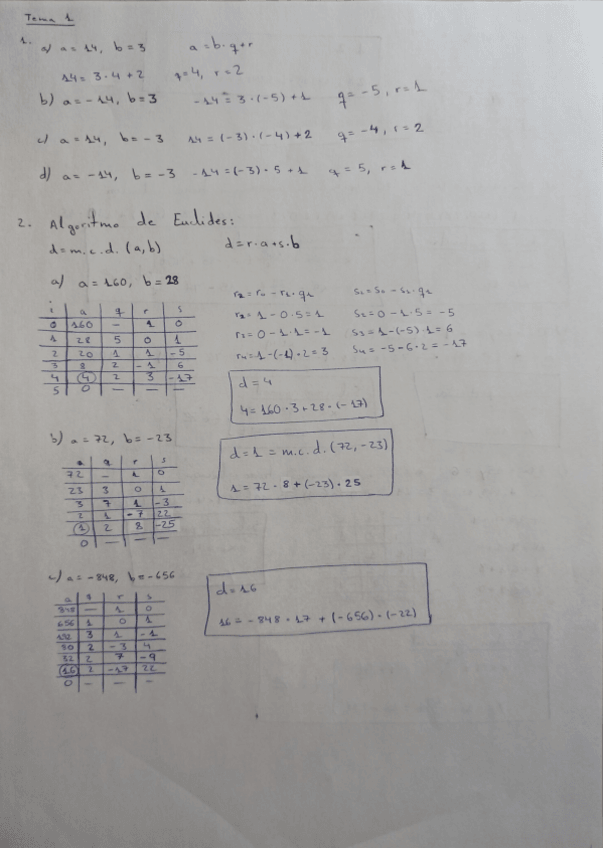 Tema 1
1. a) a = 14, b = 3 a = b·q+r
14 = 3·4+2 q=4, r=2
b) a = -14, b = 3 -14 = 3·(-5)+1 q = -5, r = 1
c) a = 14, b = -3 14 = (-3)·(-4)+2 q = -4, r = 2
d) a = -14, b = -3 -14 = (-3)·5+1 q = 5, r = 1
2. Algoritmo de Euclides:
d = m.c.d. (a,b) d = r·a+s·b
a) a = 160, b = 28
i a q r s
0 160 - 1 0
1 28 5 0 1
2 20 1 1 -5
3 8 2 -1 6
4 4 2 3 -17
5 0 - - -
r₂ = r₀ - r₁·q₁ s₂ = s₀ - s₁·q₁
r₂ = 1 - 0·5 = 1 s₂ = 0 - 1·5 = -5
r₃ = 0 - 1·1 = -1 s₃ = 1-(-5)·1 = 6
r₄ = 1-(-1)·2 = 3 s₄ = -5-6·2 = -17
d = 4
4 = 160·3+28·(-17)
b) a = 72, b = -23
a q r s
72 - 1 0
23 3 0 1
3 7 1 -3
2 1 -7 22
1 2 8 -25
0 - - -
d = 1 = m.c.d. (72, -23)
1 = 72·8+(-23)·25
c) a = -848, b = -656
a q r s
848 - 1 0
656 1 0 1
192 3 1 -1
80 2 -3 4
32 2 7 -9
16 2 -17 22
0 - - -
d = 16
16 = -848·17 + (-656)·(-22)